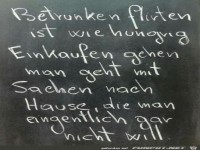 Betrunken flirten
ist wie hungrig
Einkaufen gehen
man geht mit
Sachen nach
Hause, die man
eingentlich gar
nicht will.